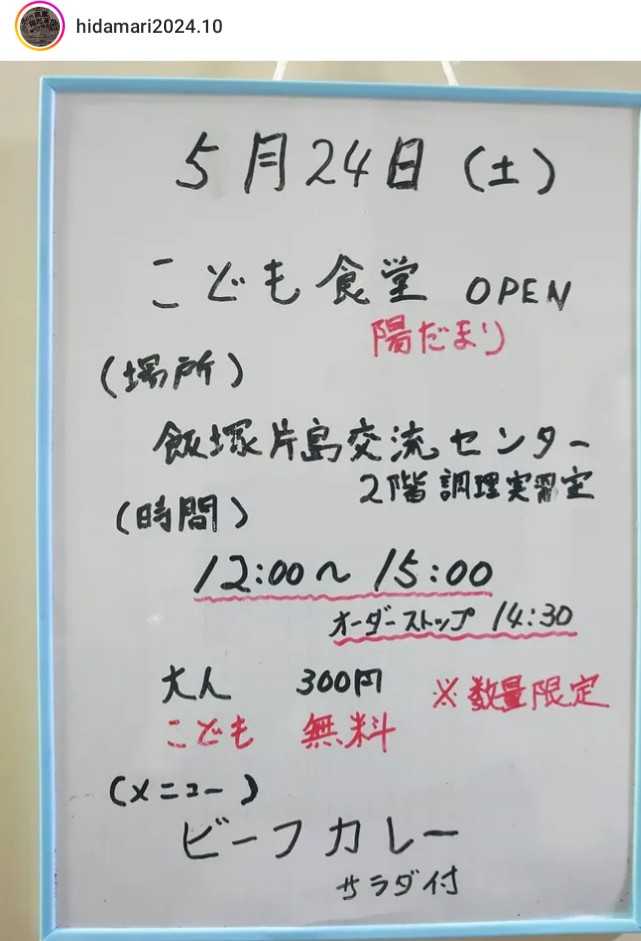 hidamari2024.10
5月24日(土)
こども食堂 OPEN
陽だまり
(場所)
飯塚片島交流センター
2階調理実習室
(時間)
12:00〜15:00
オーダーストップ 14:30
大人 300円 ※数量限定
こども 無料
(メニュー)
ビーフカレー
サラダ付